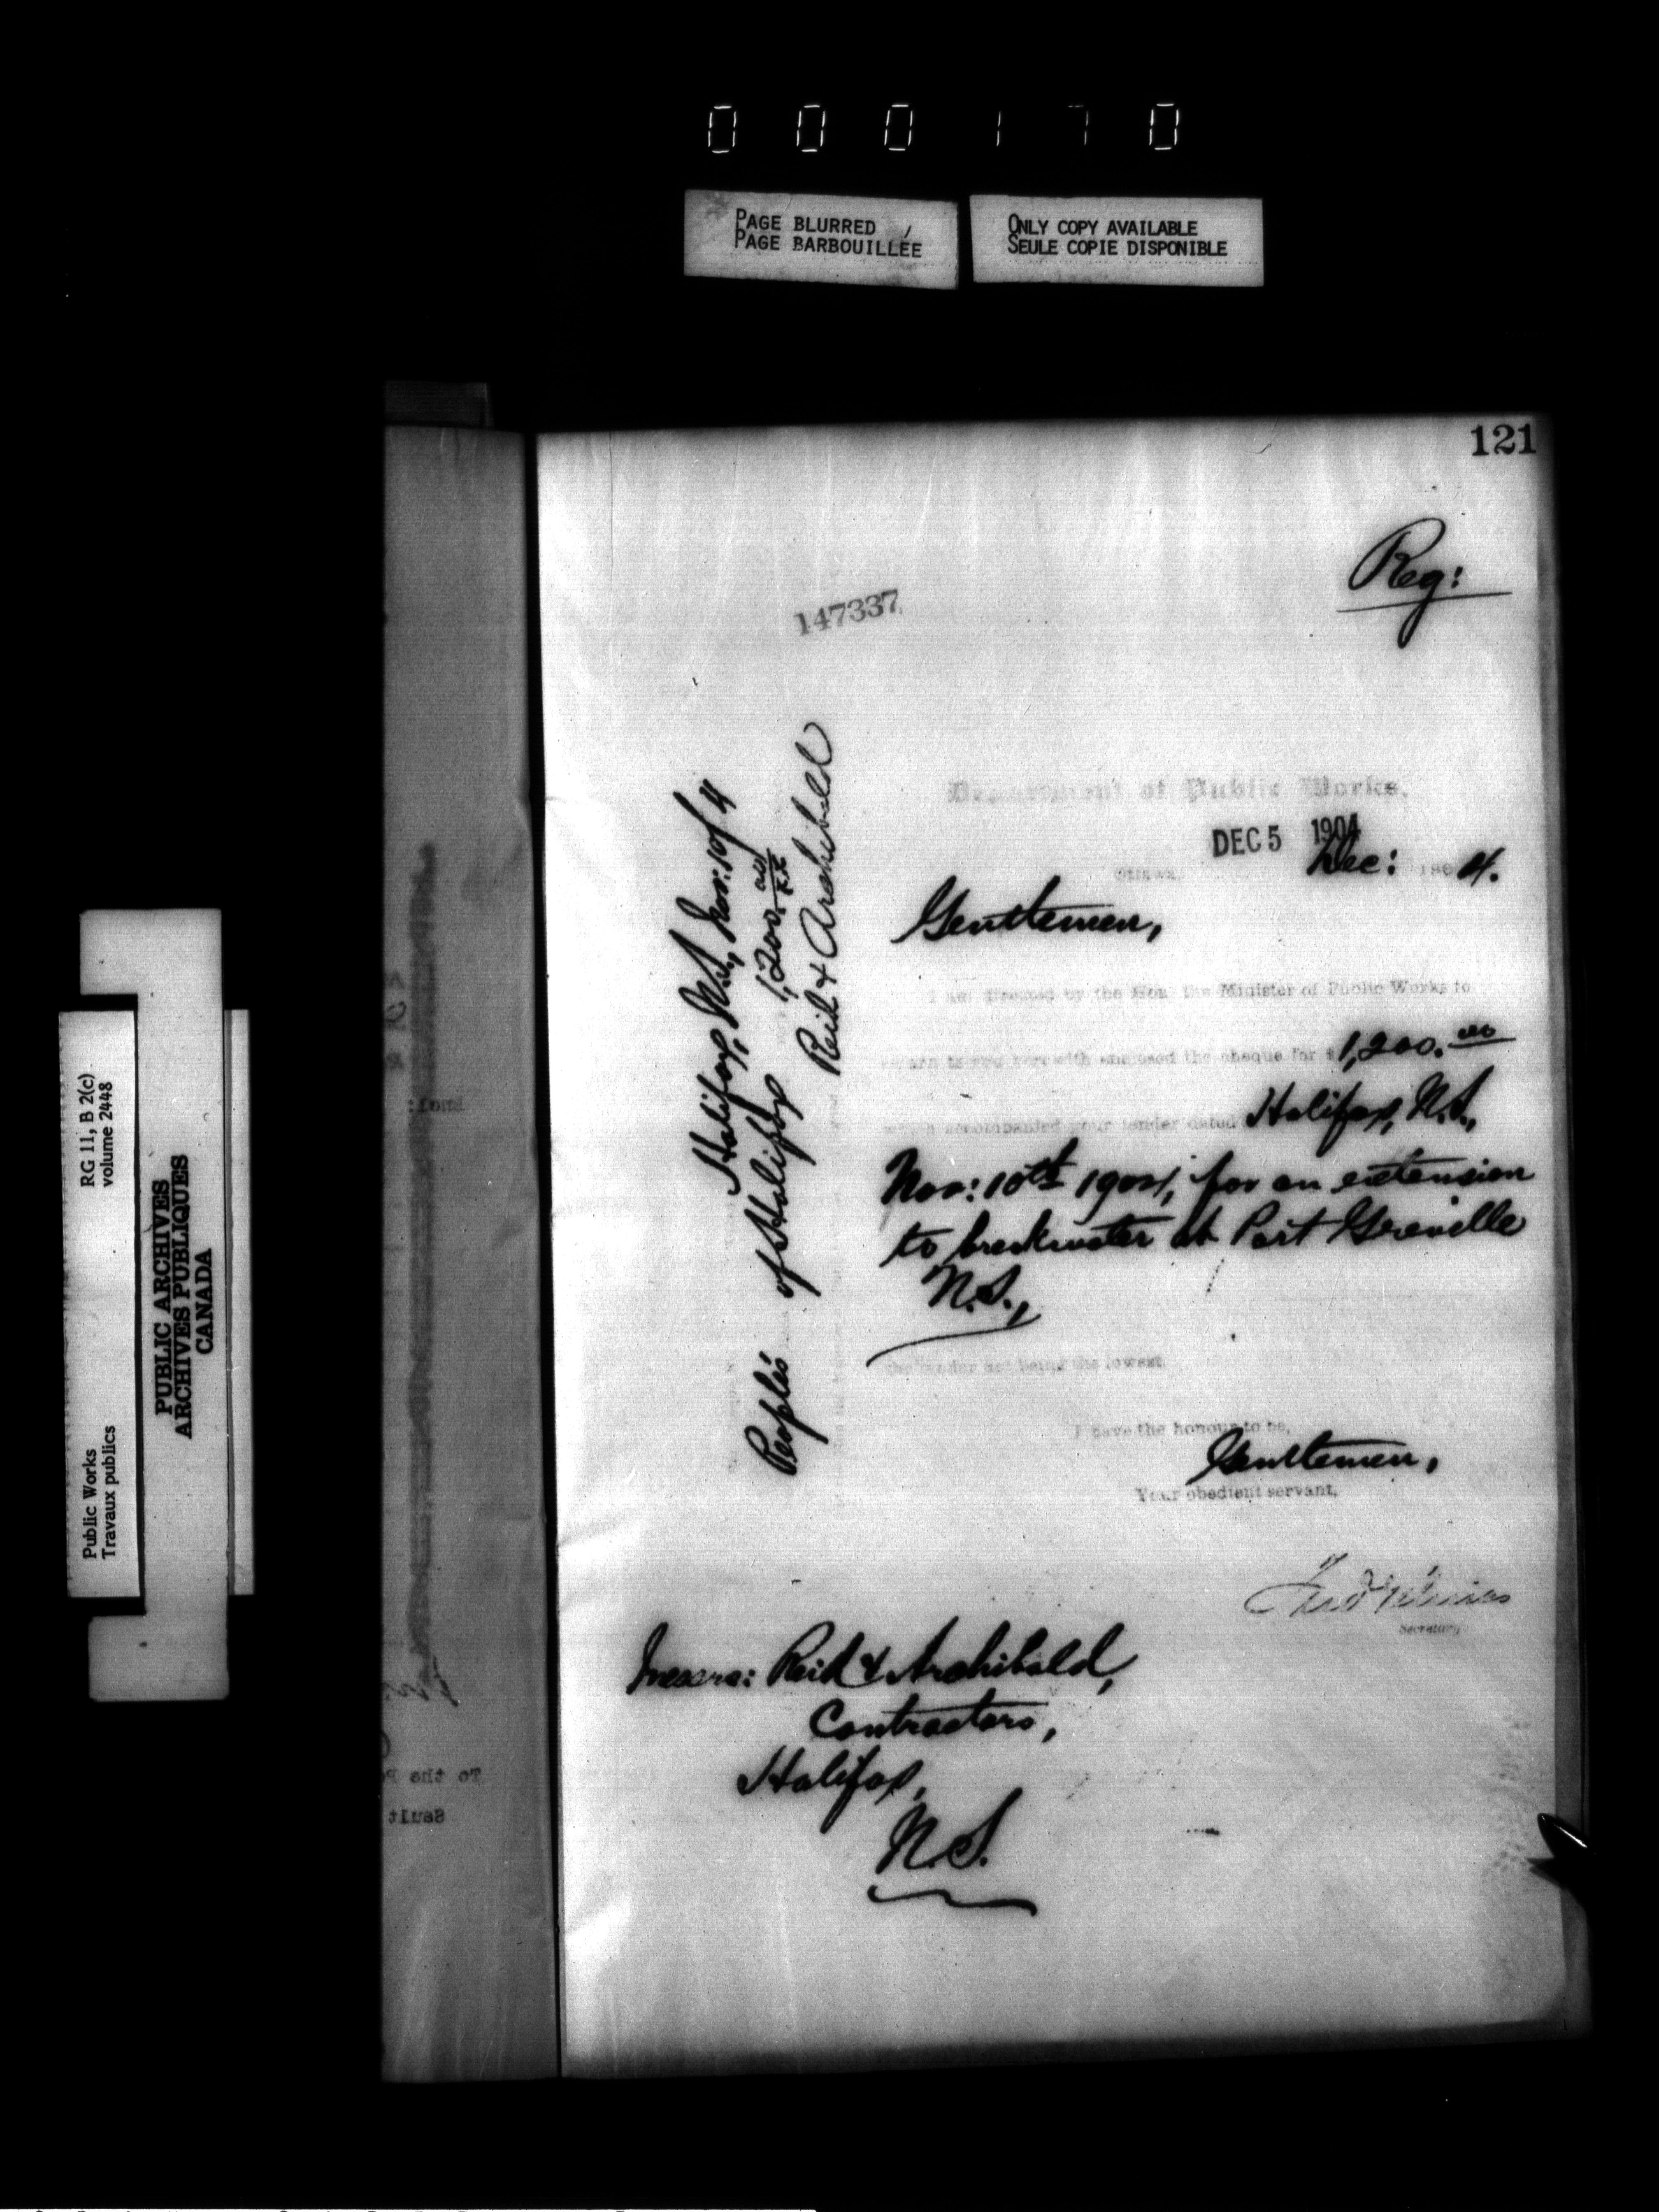 000170
PAGE BLURRED
PAGE BARBOUILLÉE
ONLY COPY AVAILABLE
SEULE COPIE DISPONIBLE
121
Reg:
147337
Department of Public Works.
DEC 5 1904
Ottawa, Dec: 190 4.
Gentlemen,
I am directed by the Hon. the Minister of Public Works to
return to you herewith enclosed the cheque for $ 1,200.00
which accompanied your tender dated Halifax, N.S.,
Nov: 10th 1904, for an extension
to breakwater at Port Greville
N.S.,
the tender not being the lowest.
I have the honour to be,
Gentlemen,
Your obedient servant,
Secretary.
Messrs: Reid & Archibald,
Contractors,
Halifax,
N.S.
Halifax, N.S., Nov: 10
People's of Halifax 1,200.00
Reid & Archibald
RG 11, B 2(c)
volume 2448
Public Works
Travaux publics
PUBLIC ARCHIVES
ARCHIVES PUBLIQUES
CANADA
To the P
Sault